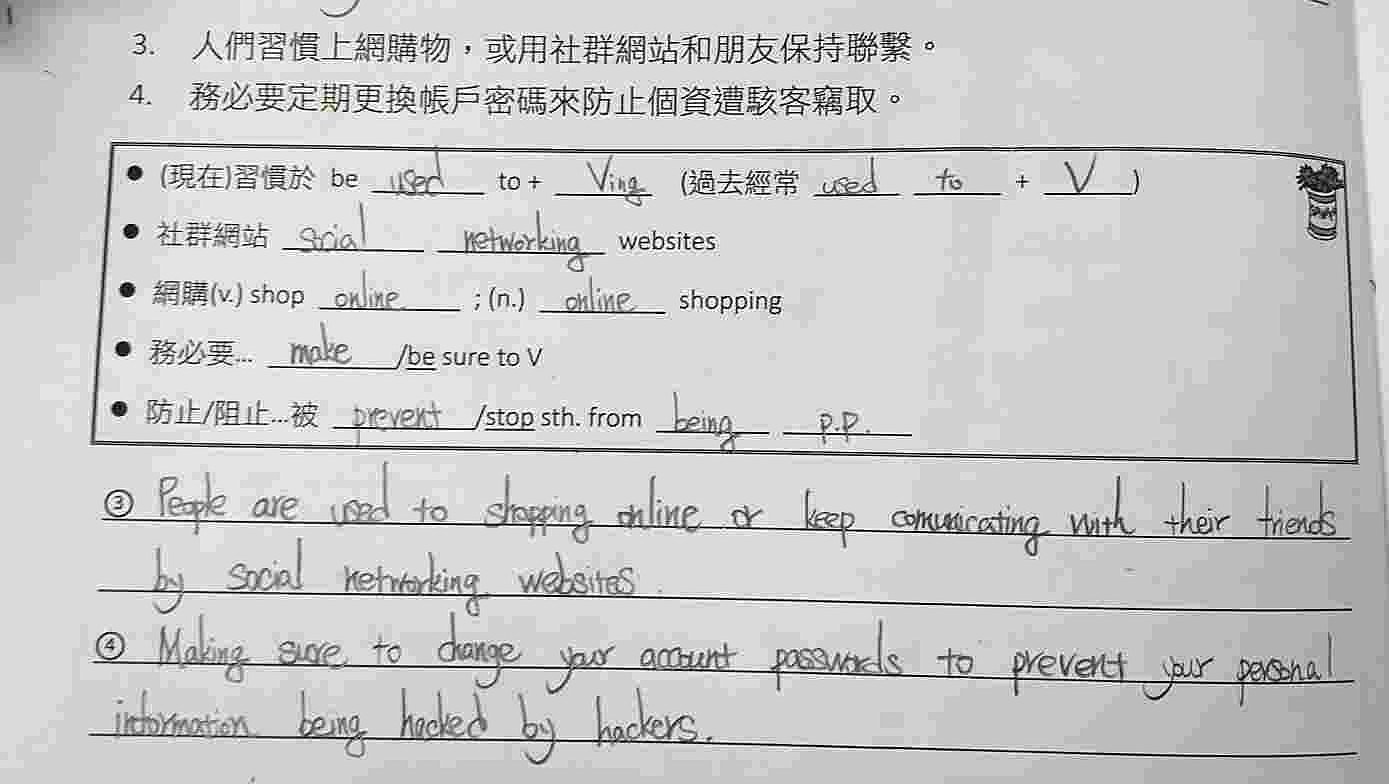 3. 人們習慣上網購物，或用社群網站和朋友保持聯繫。
4. 務必要定期更換帳戶密碼來防止個資遭駭客竊取。
● (現在)習慣於 be used to + Ving (過去經常 used to + V )
● 社群網站 social networking websites
● 網購(v.) shop online ; (n.) online shopping
● 務必要... make /be sure to V
● 防止/阻止...被 prevent /stop sth. from being p.p.
③ People are used to shopping online or keep comunicating with their friends
by social networking websites.
④ Making sure to change your account passwords to prevent your personal
information being hacked by hackers.